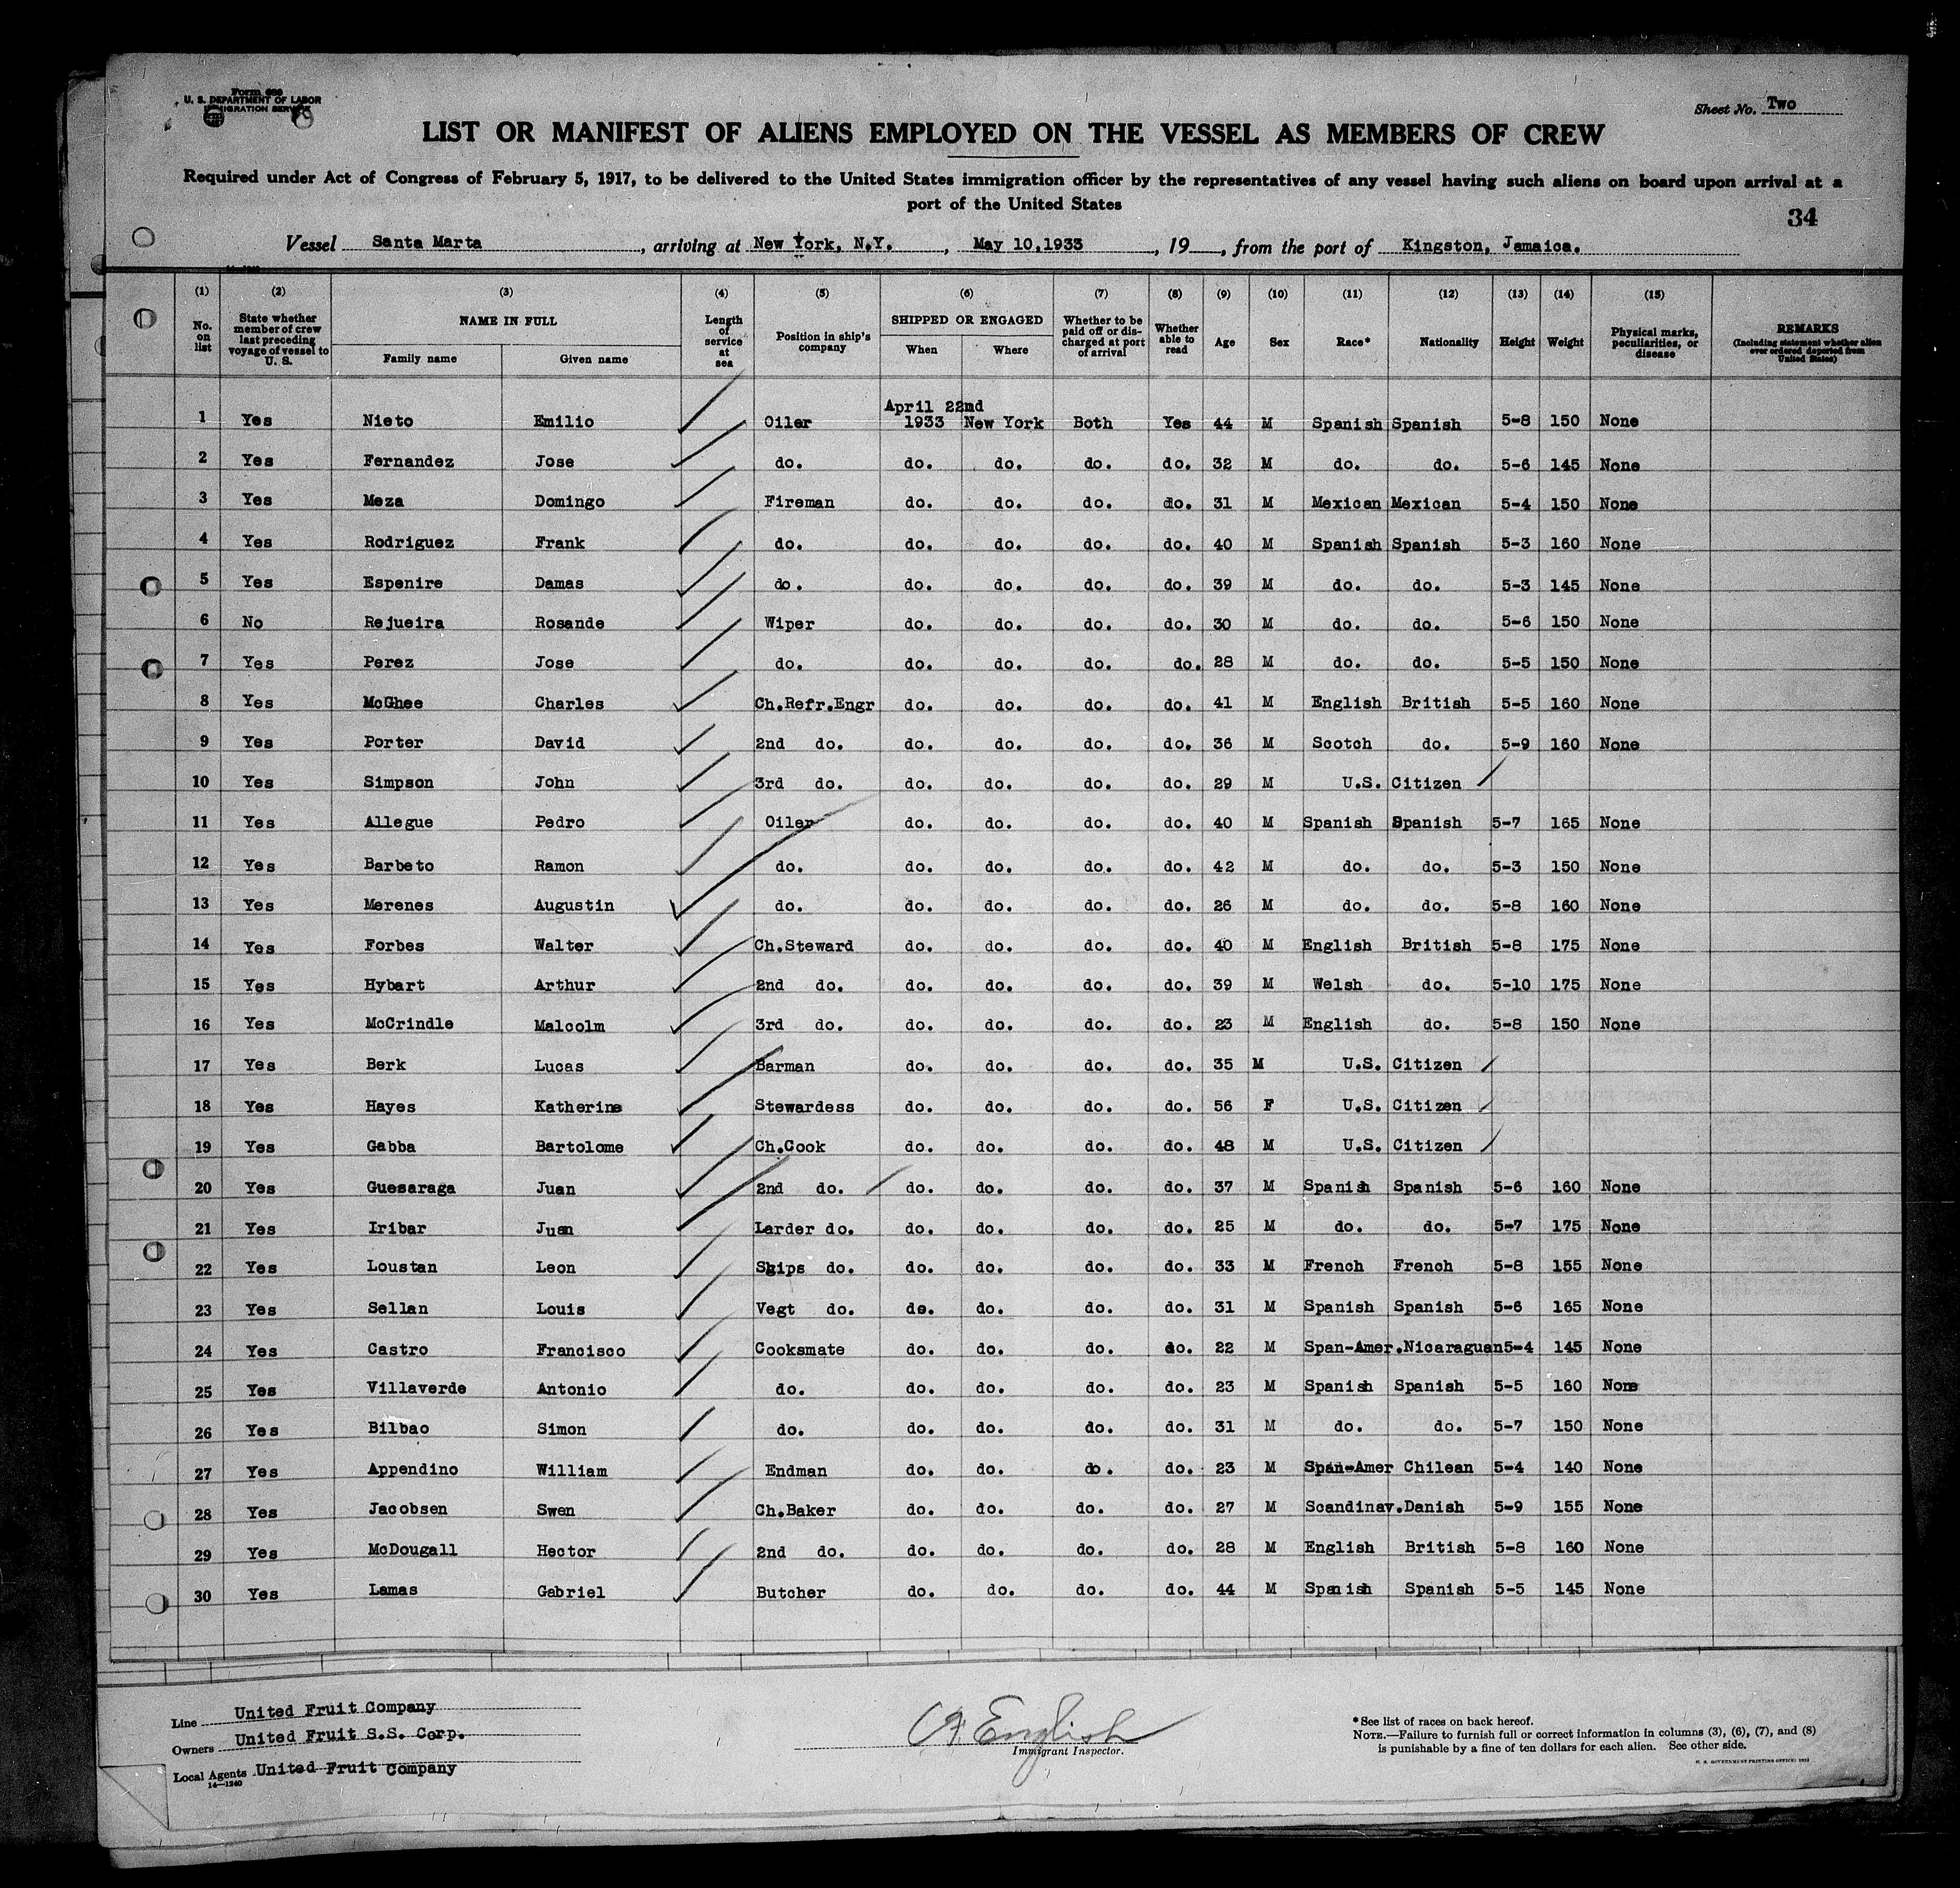 Form 680
U. S. DEPARTMENT OF LABOR
IMMIGRATION SERVICE
Sheet No. Two
LIST OR MANIFEST OF ALIENS EMPLOYED ON THE VESSEL AS MEMBERS OF CREW
Required under Act of Congress of February 5, 1917, to be delivered to the United States immigration officer by the representatives of any vessel having such aliens on board upon arrival at a
port of the United States
34
Vessel Santa Marta, arriving at New York, N.Y., May 10,1933, 19, from the port of Kingston, Jamaica.
(1) (2) (3) (4) (5) (6) (7) (8) (9) (10) (11) (12) (13) (14) (15)
No. on list State whether member of crew last preceding voyage of vessel to U. S. NAME IN FULL Family name Given name Length of service at sea Position in ship's company SHIPPED OR ENGAGED When Where Whether to be paid off or discharged at port of arrival Whether able to read Age Sex Race* Nationality Height Weight Physical marks, peculiarities, or disease REMARKS (Including statement whether alien ever ordered deported from United States)
1 Yes Nieto Emilio Oiler April 22nd 1933 New York Both Yes 44 M Spanish Spanish 5-8 150 None
2 Yes Fernandez Jose do. do. do. do. do. 32 M do. do. 5-6 145 None
3 Yes Meza Domingo Fireman do. do. do. do. 31 M Mexican Mexican 5-4 150 None
4 Yes Rodriguez Frank do. do. do. do. do. 40 M Spanish Spanish 5-3 160 None
5 Yes Espenire Damas do. do. do. do. do. 39 M do. do. 5-3 145 None
6 No Rejueira Rosande Wiper do. do. do. do. 30 M do. do. 5-6 150 None
7 Yes Perez Jose do. do. do. do. do. 28 M do. do. 5-5 150 None
8 Yes McGhee Charles Ch.Refr.Engr do. do. do. do. 41 M English British 5-5 160 None
9 Yes Porter David 2nd do. do. do. do. do. 36 M Scotch do. 5-9 160 None
10 Yes Simpson John 3rd do. do. do. do. do. 29 M U.S. Citizen
11 Yes Allegue Pedro Oiler do. do. do. do. 40 M Spanish Spanish 5-7 165 None
12 Yes Barbeto Ramon do. do. do. do. do. 42 M do. do. 5-3 150 None
13 Yes Merenes Augustin do. do. do. do. do. 26 M do. do. 5-8 160 None
14 Yes Forbes Walter Ch.Steward do. do. do. do. 40 M English British 5-8 175 None
15 Yes Hybart Arthur 2nd do. do. do. do. do. 39 M Welsh do. 5-10 175 None
16 Yes McCrindle Malcolm 3rd do. do. do. do. do. 23 M English do. 5-8 150 None
17 Yes Berk Lucas Barman do. do. do. do. 35 M U.S. Citizen
18 Yes Hayes Katherine Stewardess do. do. do. do. 56 F U.S. Citizen
19 Yes Gabba Bartolome Ch.Cook do. do. do. do. 48 M U.S. Citizen
20 Yes Guesaraga Juan 2nd do. do. do. do. do. 37 M Spanish Spanish 5-6 160 None
21 Yes Iribar Juan Larder do. do. do. do. do. 25 M do. do. 5-7 175 None
22 Yes Loustan Leon Ships do. do. do. do. do. 33 M French French 5-8 155 None
23 Yes Sellan Louis Vegt do. do. do. do. do. 31 M Spanish Spanish 5-6 165 None
24 Yes Castro Francisco Cooksmate do. do. do. do. 22 M Span-Amer. Nicaraguan 5-4 145 None
25 Yes Villaverde Antonio do. do. do. do. do. 23 M Spanish Spanish 5-5 160 None
26 Yes Bilbao Simon do. do. do. do. do. 31 M do. do. 5-7 150 None
27 Yes Appendino William Endman do. do. do. do. 23 M Span-Amer Chilean 5-4 140 None
28 Yes Jacobsen Swen Ch.Baker do. do. do. do. 27 M Scandinav. Danish 5-9 155 None
29 Yes McDougall Hector 2nd do. do. do. do. do. 28 M English British 5-8 160 None
30 Yes Lamas Gabriel Butcher do. do. do. do. 44 M Spanish Spanish 5-5 145 None
Line United Fruit Company
Owners United Fruit S.S. Corp.
Local Agents United Fruit Company
14—1240
English
Immigrant Inspector.
*See list of races on back hereof.
NOTE.—Failure to furnish full or correct information in columns (3), (6), (7), and (8)
is punishable by a fine of ten dollars for each alien. See other side.
U. S. GOVERNMENT PRINTING OFFICE: